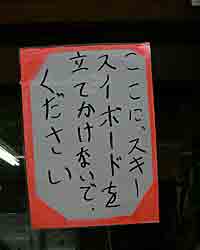 ここに、スキー
スイボードを
立てかけないで、
ください